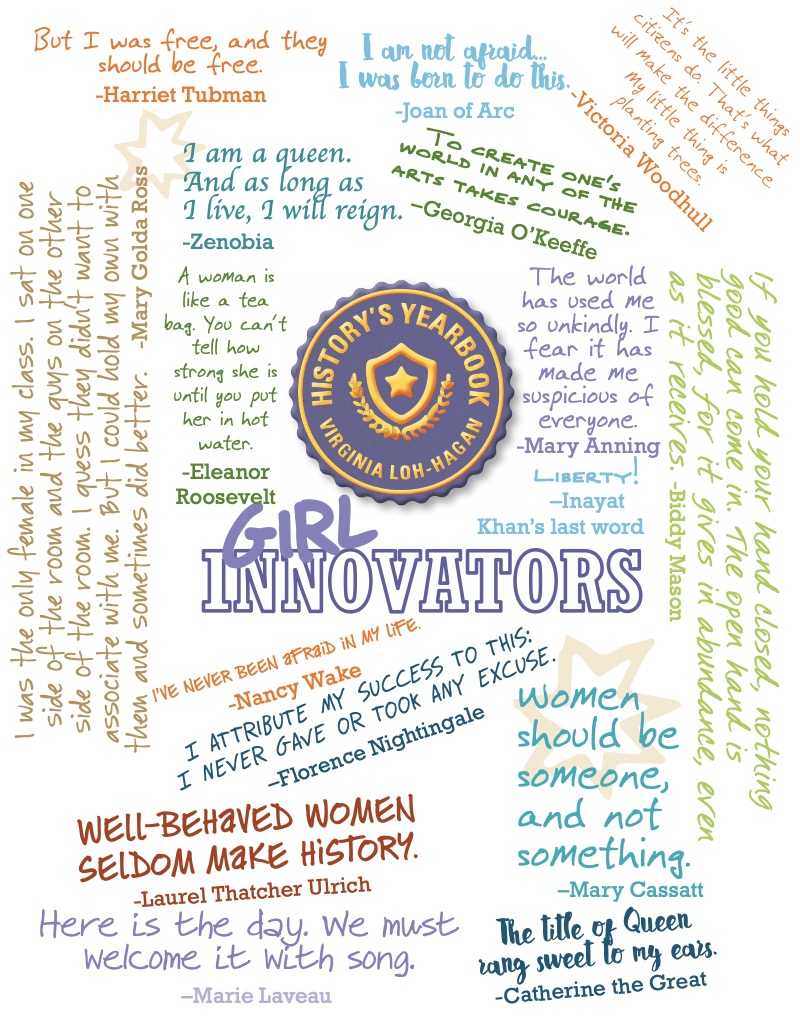 But I was free, and they
should be free.
-Harriet Tubman
I am not afraid...
I was born to do this.
-Joan of Arc
It's the little things
citizens do. That's what
will make the difference.
my little thing is
planting trees.
-Victoria Woodhull
I am a queen.
And as long as
I live, I will reign.
-Zenobia
To create one's
world in any of the
arts takes courage.
–Georgia O'Keeffe
I was the only female in my class. I sat on one
side of the room and the guys on the other
side of the room. I guess they didn't want to
associate with me. But I could hold my own with
them and sometimes did better. -Mary Golda Ross
A woman is
like a tea
bag. You can't
tell how
strong she is
until you put
her in hot
water.
-Eleanor
Roosevelt
HISTORY'S YEARBOOK
VIRGINIA LOH-HAGAN
The world
has used me
so unkindly. I
fear it has
made me
suspicious of
everyone.
-Mary Anning
Liberty!
–Inayat
Khan's last word
If you hold your hand closed, nothing
good can come in. The open hand is
blessed, for it gives in abundance, even
as it receives. -Biddy Mason
GIRL
INNOVATORS
I've never been afraid in my life.
-Nancy Wake
I attribute my success to this:
I never gave or took any excuse.
–Florence Nightingale
Women
should be
someone,
and not
something.
–Mary Cassatt
Well-behaved women
seldom make history.
-Laurel Thatcher Ulrich
Here is the day. We must
welcome it with song.
–Marie Laveau
The title of Queen
rang sweet to my ears.
-Catherine the Great